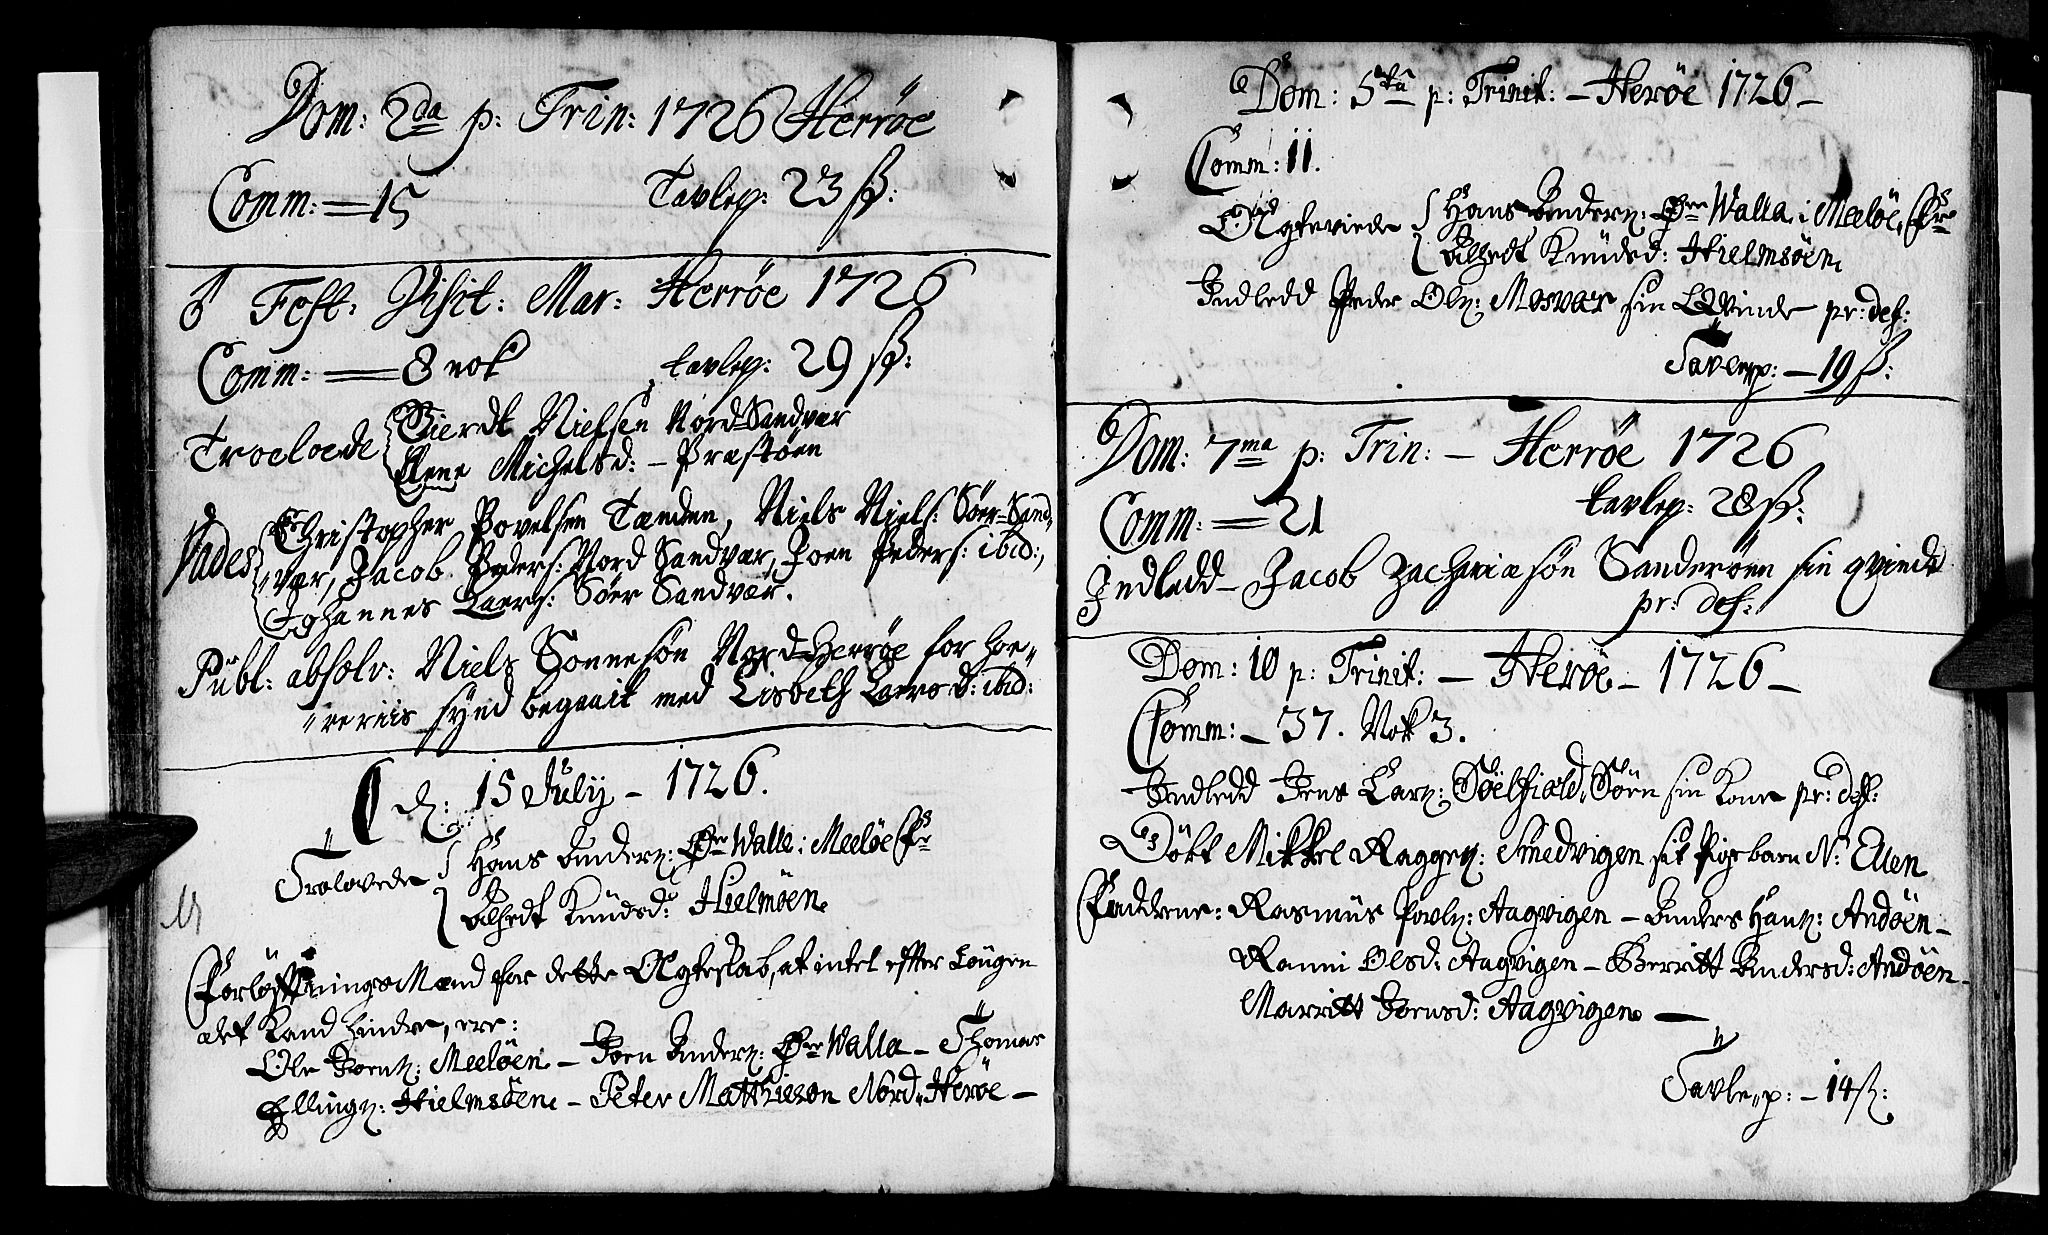 Dom: 2da p: Trin: 1726 Herröe
Comm: = 15 Tavlep: 23 sz:
Fest: Visit: Mar: Herröe 1726
Comm: = 8 nok tavlep: 29 sz:
Troeloede Sierdt Nielsen Nord-Sandvær
Elene Michelsd: - Præstöen
Vades Christopher Povelsen Tænden, Niels Niels: Söer-Sand,,
,,vær, Jacob Peders: Nord Sandvær, Joen Peders: ibid:,
Johannes Laers: Söer Sandvær.
Publ: absolv: Niels Sonnesön Nord-Herröe for hoe,,
,,reriis synd begaait med Lisbeth Laersd: ibid:
d: 15 July - 1726.
Trolovede Hans Anders: Øre Walle i Meelöe Pr
Aalhedt Knudsd: Hielmöen
Forlöftnings Mænd for dette Ægteskab, at intet efter Lougen
det Kand hindre, ere:
Ole Joens: Meelöen - Joen Anders: Øre Walla - Thomas
Ellings: Hielmsöen - Peter Mathieson Nord-Heröe -
Dom: 5ta p: Trinit: - Heröe 1726 -
Comm: 11.
Ægteviede Hans Anders: Øre Walla i Meelöe Pr
Aalhedt Knudsd: Hielmsöen
Indledd Peder Ols: Mosvær sin Qvinde pr: def:
Tavlep: - 19 s:
Dom: 7ma p: Trin: - Herröe 1726
Comm: = 21 tavlep: 28 sz:
Indledd - Jacob Zachariasön Sanderöen sin qvinde
pr: def:
Dom: 10 p: Trinit: - Heröe - 1726 -
Comm: - 37. Nok 3.
Indledd Jens Lars: Söelfiæld, Sörn sin Kone pr: def:
Döbt Mikkel Ragges: Smedvigen sit Pigebarn N: Ellen
Faddrene: Rasmus Povls: Aagvigen - Anders Hans: Andöen -
Ranni Olsd: Aagvigen - Berritt Andersd: Andöen -
Marritt Joensd: Aagvigen -
Tavle,,p: - 14 s: